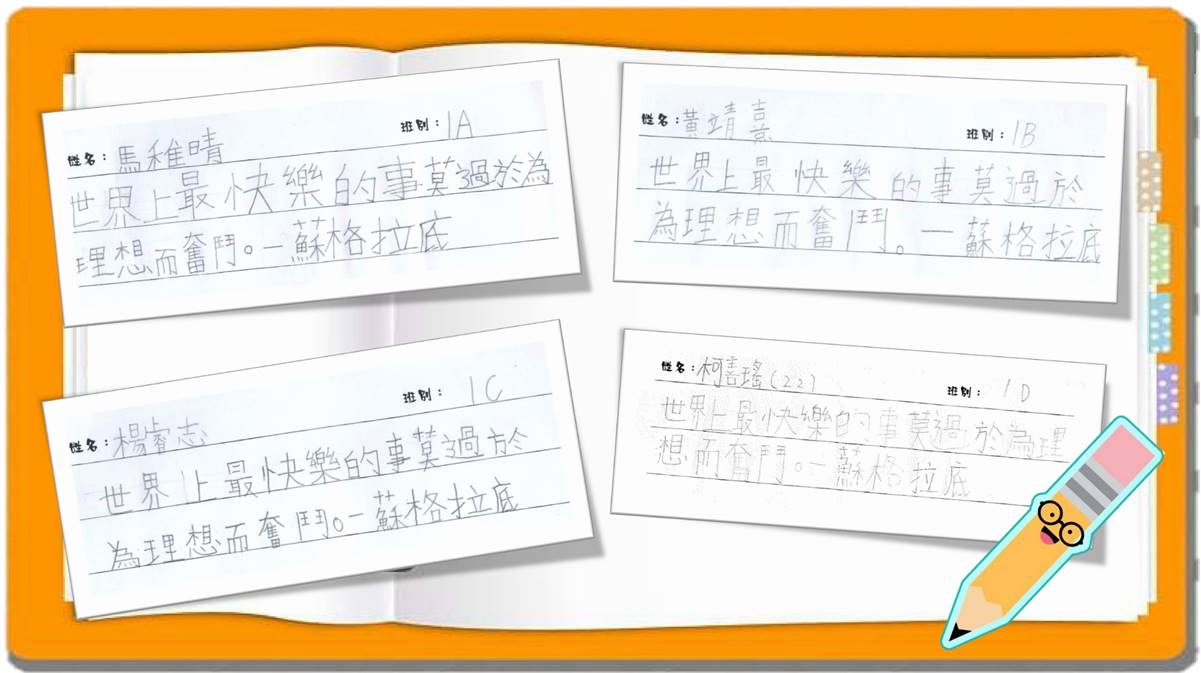 姓名：馬稚晴 班別：1A
世界上最快樂的事莫過於為
理想而奮鬥。—蘇格拉底
姓名：黃靖熹 班別：1B
世界上最快樂的事莫過於
為理想而奮鬥。—蘇格拉底
姓名：楊睿志 班別：1C
世界上最快樂的事莫過於
為理想而奮鬥。—蘇格拉底
姓名：柯善瑤(22) 班別：1D
世界上最快樂的事莫過於為理
想而奮鬥。—蘇格拉底